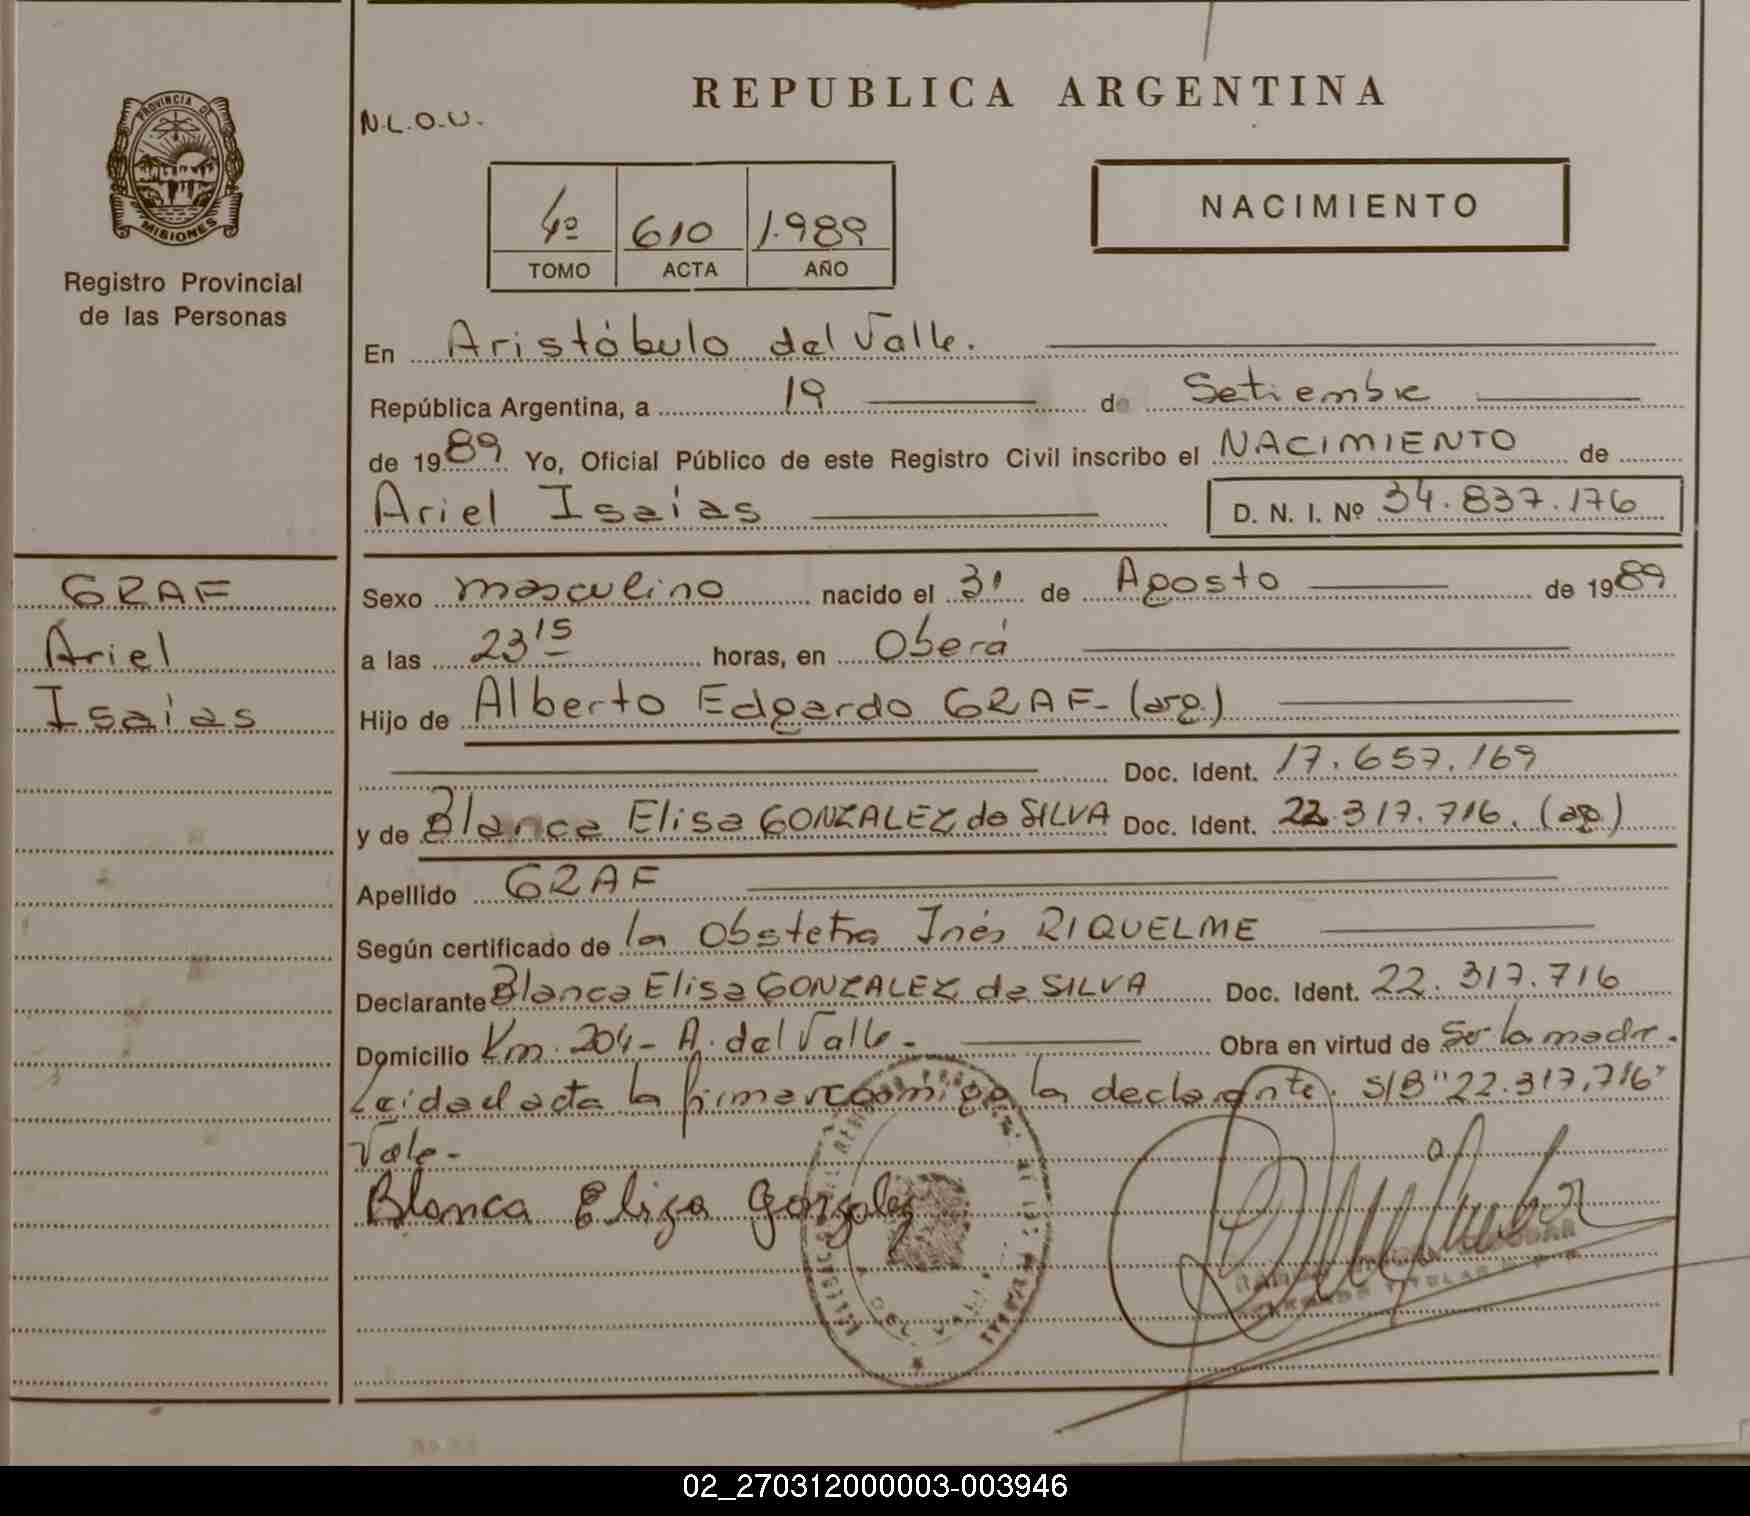 REPUBLICA ARGENTINA
N.L.O.U.
PROVINCIA DE
MISIONES
Registro Provincial
de las Personas
4º 610 1.989
TOMO ACTA AÑO
NACIMIENTO
En Aristóbulo del Valle.
República Argentina, a 19 de Setiembre
de 1989 Yo, Oficial Público de este Registro Civil inscribo el NACIMIENTO de
Ariel Isaías D. N. I. Nº 34.837.176
GRAF
Ariel
Isaías
Sexo masculino nacido el 31 de Agosto de 1989
a las 23 15 horas, en Oberá
Hijo de Alberto Edgardo GRAF- (arg.)
Doc. Ident. 17.657.169
y de Blanca Elisa GONZALEZ da SILVA Doc. Ident. 22.317.716. (ag.)
Apellido GRAF
Según certificado de la Obstetra Inés RIQUELME
Declarante Blanca Elisa GONZALEZ da SILVA Doc. Ident. 22.317.716
Domicilio Km. 204- A. del Valle- Obra en virtud de Ser la madre.
Leída el acta la firmar conmigo la declarante. S/B "22.317.716"
Vale-
Blanca Eliza Gonzalez
02_270312000003-003946